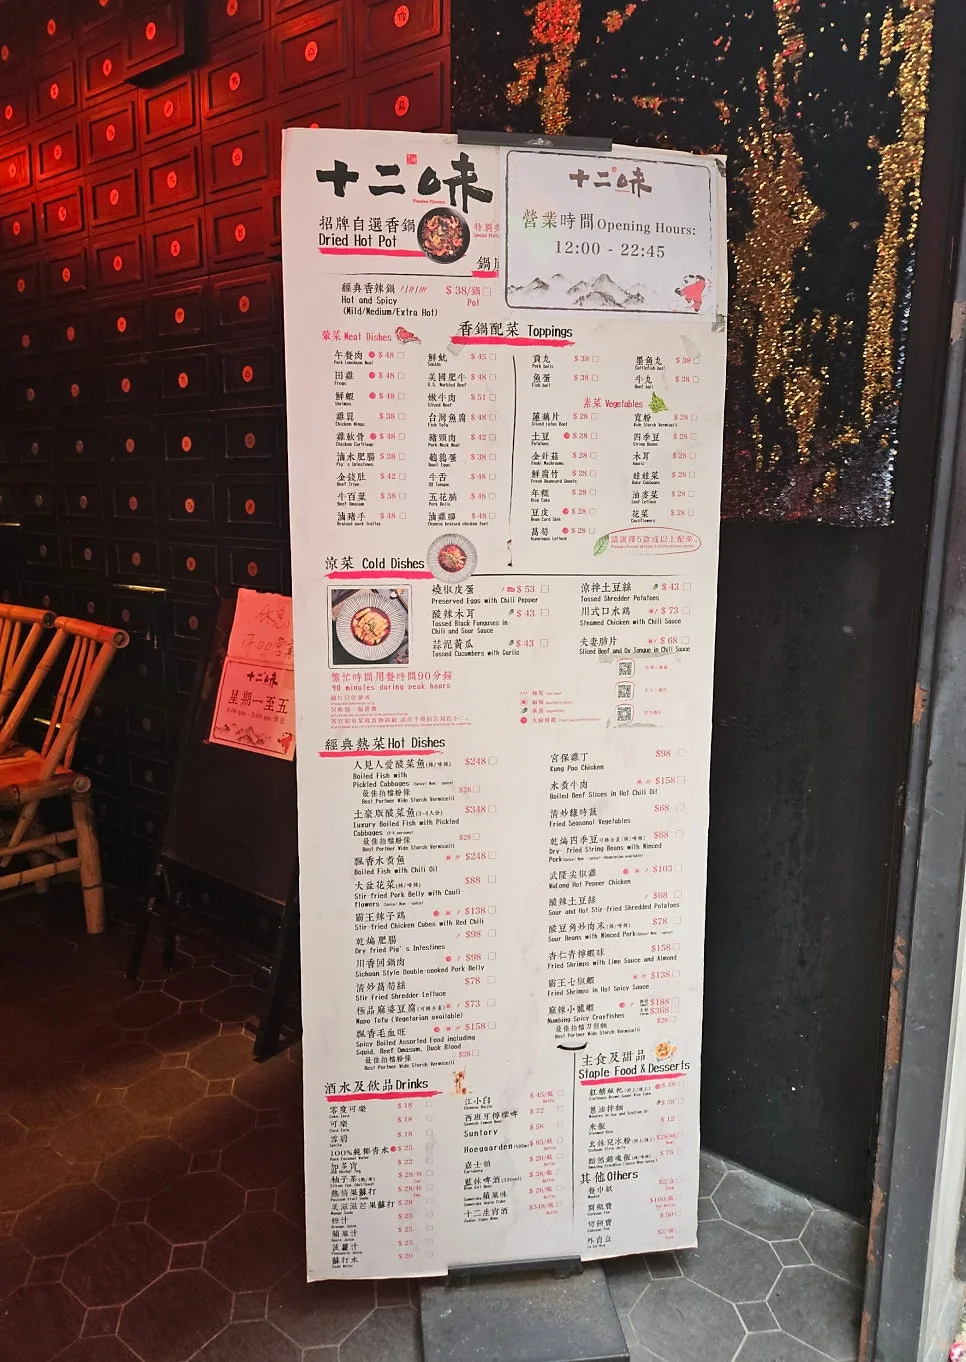 十二味
Twelve Flavors
招牌自選香鍋
Dried Hot Pot
特別
十二味
營業時間 Opening Hours:
12:00 - 22:45
鍋
經典香辣鍋 $ 38/鍋
Hot and Spicy Pot
(Mild/Medium/Extra Hot)
香鍋配菜 Toppings
葷菜 Meat Dishes
午餐肉 $ 48
Pork Luncheon Meat
田雞 $ 48
Frogs
鮮蝦 $ 48
Shrimps
雞翼 $ 38
Chicken Wings
雞軟骨 $ 48
Chicken Cartilage
滷水肥腸 $ 38
Pig's Intestines
金錢肚 $ 42
Beef Tripe
牛百葉 $ 38
Beef Omasum
滷豬手 $ 48
Braised pork trotter
鮮魷 $ 45
Squids
美國肥牛 $ 48
U.S. Marbled Beef
嫩牛肉 $ 51
Sliced Beef
台灣魚腐 $ 48
Fish Tofu
豬頸肉 $ 42
Pork Neck Meat
鵪鶉蛋 $ 38
Quail Eggs
牛舌 $ 48
OX Tongue
五花腩 $ 48
Pork Belly
滷雞腳 $ 48
Chinese braised chicken feet
貢丸 $ 38
Pork balls
魚蛋 $ 38
Fish ball
墨魚丸 $ 38
Cuttlefish ball
牛丸 $ 38
Beef ball
素菜 Vegetables
蓮藕片 $ 28
Sliced Lotus Root
土豆 $ 28
Potatoes
金針菇 $ 28
Enoki Mushrooms
鮮腐竹 $ 28
Fresh Beancurd Sheets
年糕 $ 28
Rice Cake
豆皮 $ 28
Bean Curd Skin
萵筍 $ 28
Asparagus lettuce
寬粉 $ 28
Wide Starch Vermicelli
四季豆 $ 28
String Beans
木耳 $ 28
娃娃菜 $ 28
Baby Cabbages
油麥菜 $ 28
Leaf lettuce
花菜 $ 28
Cauliflowers
請選擇5款或以上配菜。
涼菜 Cold Dishes
燒椒皮蛋 $ 53
Preserved Eggs with Chili Pepper
酸辣木耳 $ 43
Tossed Black Funguses in
Chili and Sour Sauce
蒜泥黃瓜 $ 43
Tossed Cucumbers with Garlic
涼拌土豆絲 $ 43
Tossed Shredder Potatoes
川式口水鷄 $ 73
Steamed Chicken with Chili Sauce
夫妻肺片 $ 68
Sliced Beef and Ox Tongue in Chili Sauce
繁忙時間用餐時間90分鐘
90 minutes during peak hours
經典熱菜 Hot Dishes
人見人愛酸菜魚(辣/唔辣) $248
Boiled Fish with
Pickled Cabbages
最佳拍檔粉條 $28
Best Partner Wide Starch Vermicelli
土豪版酸菜魚(3-4人份) $348
Luxury Boiled Fish with Pickled
Cabbages
最佳拍檔粉條 $28
Best Partner Wide Starch Vermicelli
飄香水煮魚 $248
Boiled Fish with Chili Oil
大盆花菜(辣/唔辣) $88
Stir-fried Pork Belly with Cauli-
flowers
霸王辣子鷄 $138
Stir-fried Chicken Cubes with Red Chili
乾煸肥腸 $98
Dry fried Pig's Intestines
川香回鍋肉 $98
Sichuan Style Double-cooked Pork Belly
清炒萵筍絲 $78
Stir Fried Shredder Lettuce
極品麻婆豆腐(可轉全素) $73
Mapo Tofu (Vegetarian available)
飄香毛血旺 $158
Spicy Boiled Assorted Food including
Squid, Beef Omasum, Duck Blood
最佳拍檔粉條 $28
Best Partner Wide Starch Vermicelli
宮保雞丁 $98
Kung Pao Chicken
水煮牛肉 $158
Boiled Beef Slices in Hot Chili Oil
清炒雜時蔬 $68
Fried Seasonal Vegetables
乾煸四季豆 $68
Dry-fried String Beans with Minced
Pork
武隆尖椒雞 $103
WuLong Hot Pepper Chicken
酸辣土豆絲 $68
Sour and Hot Stir-fried Shredded Potatoes
酸豆角炒肉末(辣/唔辣) $78
Sour Beans with Minced Pork
杏仁青檸蝦球 $158
Fried Shrimps with Lime Sauce and Almond
霸王七椒蝦 $138
Fried Shrimps in Hot Spicy Sauce
麻辣小龍蝦 $188
Numbing Spicy Crayfishes $368
最佳拍檔刀削麵 $28
Best Partner Wide Starch Vermicelli
酒水及飲品 Drinks
零度可樂 $ 18
Coke Zero
可樂 $ 18
Coca Cola
雪碧 $ 18
Sprite
100%純椰青水 $ 25
Pure Coconut Water
加多寶 $ 22
柚子茶 $ 28
熱情果蘇打 $ 28
Passion Fruit Soda
美滋滋芒果蘇打 $ 28
Mango Soda
橙汁 $ 25
Orange Juice
蘋果汁 $ 25
Apple Juice
菠蘿汁 $ 25
Pineapple Juice
蘇打水 $ 20
Soda Water
江小白 $ 45/瓶
西班牙檸檬啤 $ 72
Spanish Lemon Beer
Suntory $ 58
Hoegaarden $ 85/瓶
嘉士伯 $ 20/瓶
Carlsberg
藍妹啤酒(330ml) $ 28/瓶
Blue Girl Beer
Somersby蘋果味 $ 26/瓶
Somersby Apple Cider
十二生肖酒 $348/瓶
主食及甜品
Staple Food & Desserts
紅糖糍粑 $ 48
蔥油拌麵 $ 38
米飯 $ 12
Steamed Rice
Sichuan Style Jelly
黯然銷魂飯 $ 78
其他 Others
餐巾紙 $2/盒
Napkin
開瓶費 $100/瓶
Corkage Fee
切餅費 $ 50
Cakeage Fee
外賣盒 $2/個
休息
17:00
十二味
星期一至五